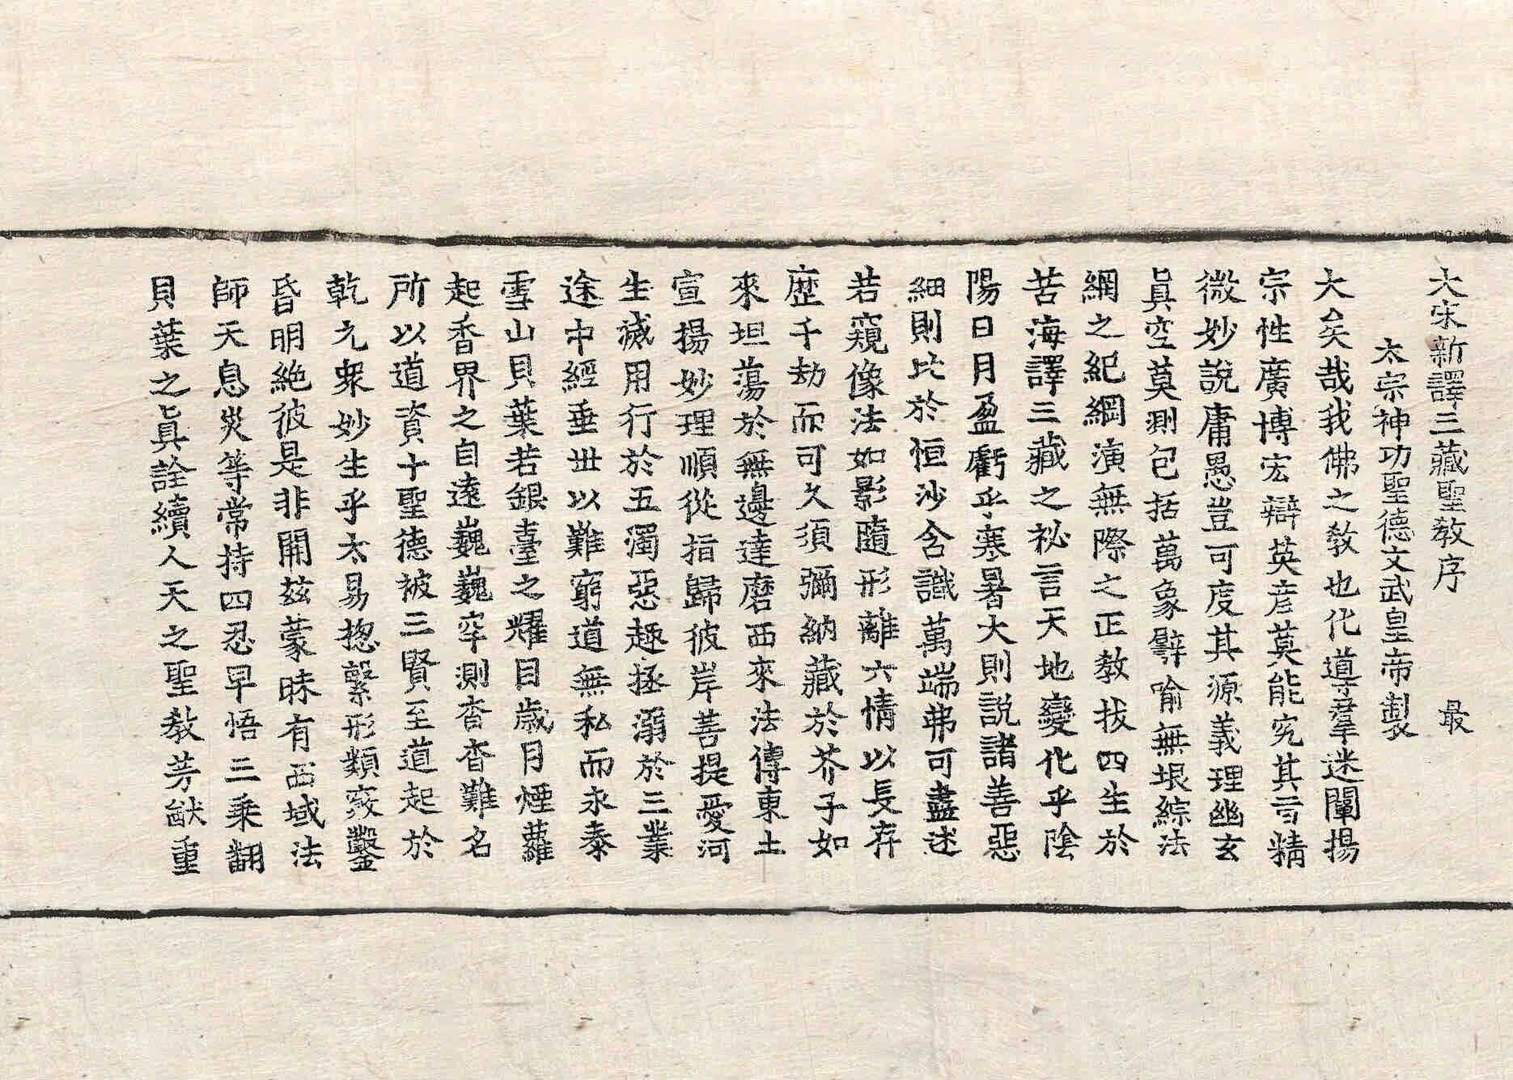 大宋新譯三藏聖教序 最
太宗神功聖德文武皇帝製
大矣哉我佛之教也化導羣迷闡揚
宗性廣博宏辯英彦莫能究其旨精
微妙說庸愚豈可度其源義理幽玄
眞空莫測包括萬象譬喻無垠綜法
網之紀綱演無際之正教拔四生於
苦海譯三藏之祕言天地變化乎陰
陽日月盈虧乎寒暑大則說諸善惡
細則比於恒沙含識萬端弗可盡述
若窺像法如影隨形離六情以長存
歷千劫而可久須彌納藏於芥子如
來坦蕩於無邊達磨西來法傳東土
宣揚妙理順從指歸彼岸菩提愛河
生滅用行於五濁惡趣拯溺於三業
途中經垂世以難窮道無私而永泰
雪山貝葉若銀臺之耀目歲月煙蘿
起香界之自遠巍巍罕測杳杳難名
所以道資十聖德被三賢至道起於
乾元衆妙生乎太易揔繫形類竅鑿
昏明絶彼是非開茲蒙昧有西域法
師天息災等常持四忍早悟三乘翻
貝葉之眞詮續人天之聖教芳猷重